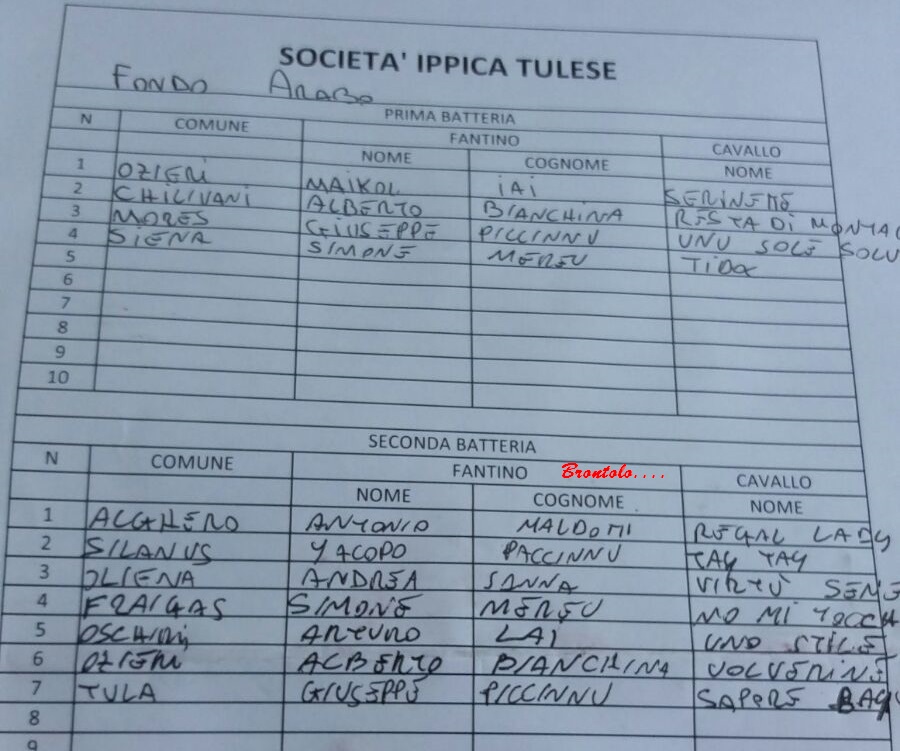 SOCIETA' IPPICA TULESE
FONDO ARABO
PRIMA BATTERIA
N COMUNE FANTINO CAVALLO
NOME COGNOME NOME
1 OZIERI MAIKOL IAI
2 CHILIVANI ALBERTO BIANCHINA RESTA DI
3 MORES GIUSEPPE PICCINNU UNU SOLE SOLU
4 SIENA SIMONE MEREU
5
6
7
8
9
10
SECONDA BATTERIA
N COMUNE FANTINO Brontolo.... CAVALLO
NOME COGNOME NOME
1 ALGHERO ANTONIO REGAL LADY
2 SILANUS YACOPO PACCINNU TAY TAY
3 OLIENA ANDREA SANNA VIRTÙ SENE
4 FRAIGAS SIMONE MEREU NO MI TOCCH
5 OSCHIRI ARTURO LAI UNO STILE
6 OZIERI ALBERTO BIANCHINA VOLVERINE
7 TULA GIUSEPPE PICCINNU SAPORE
8
9